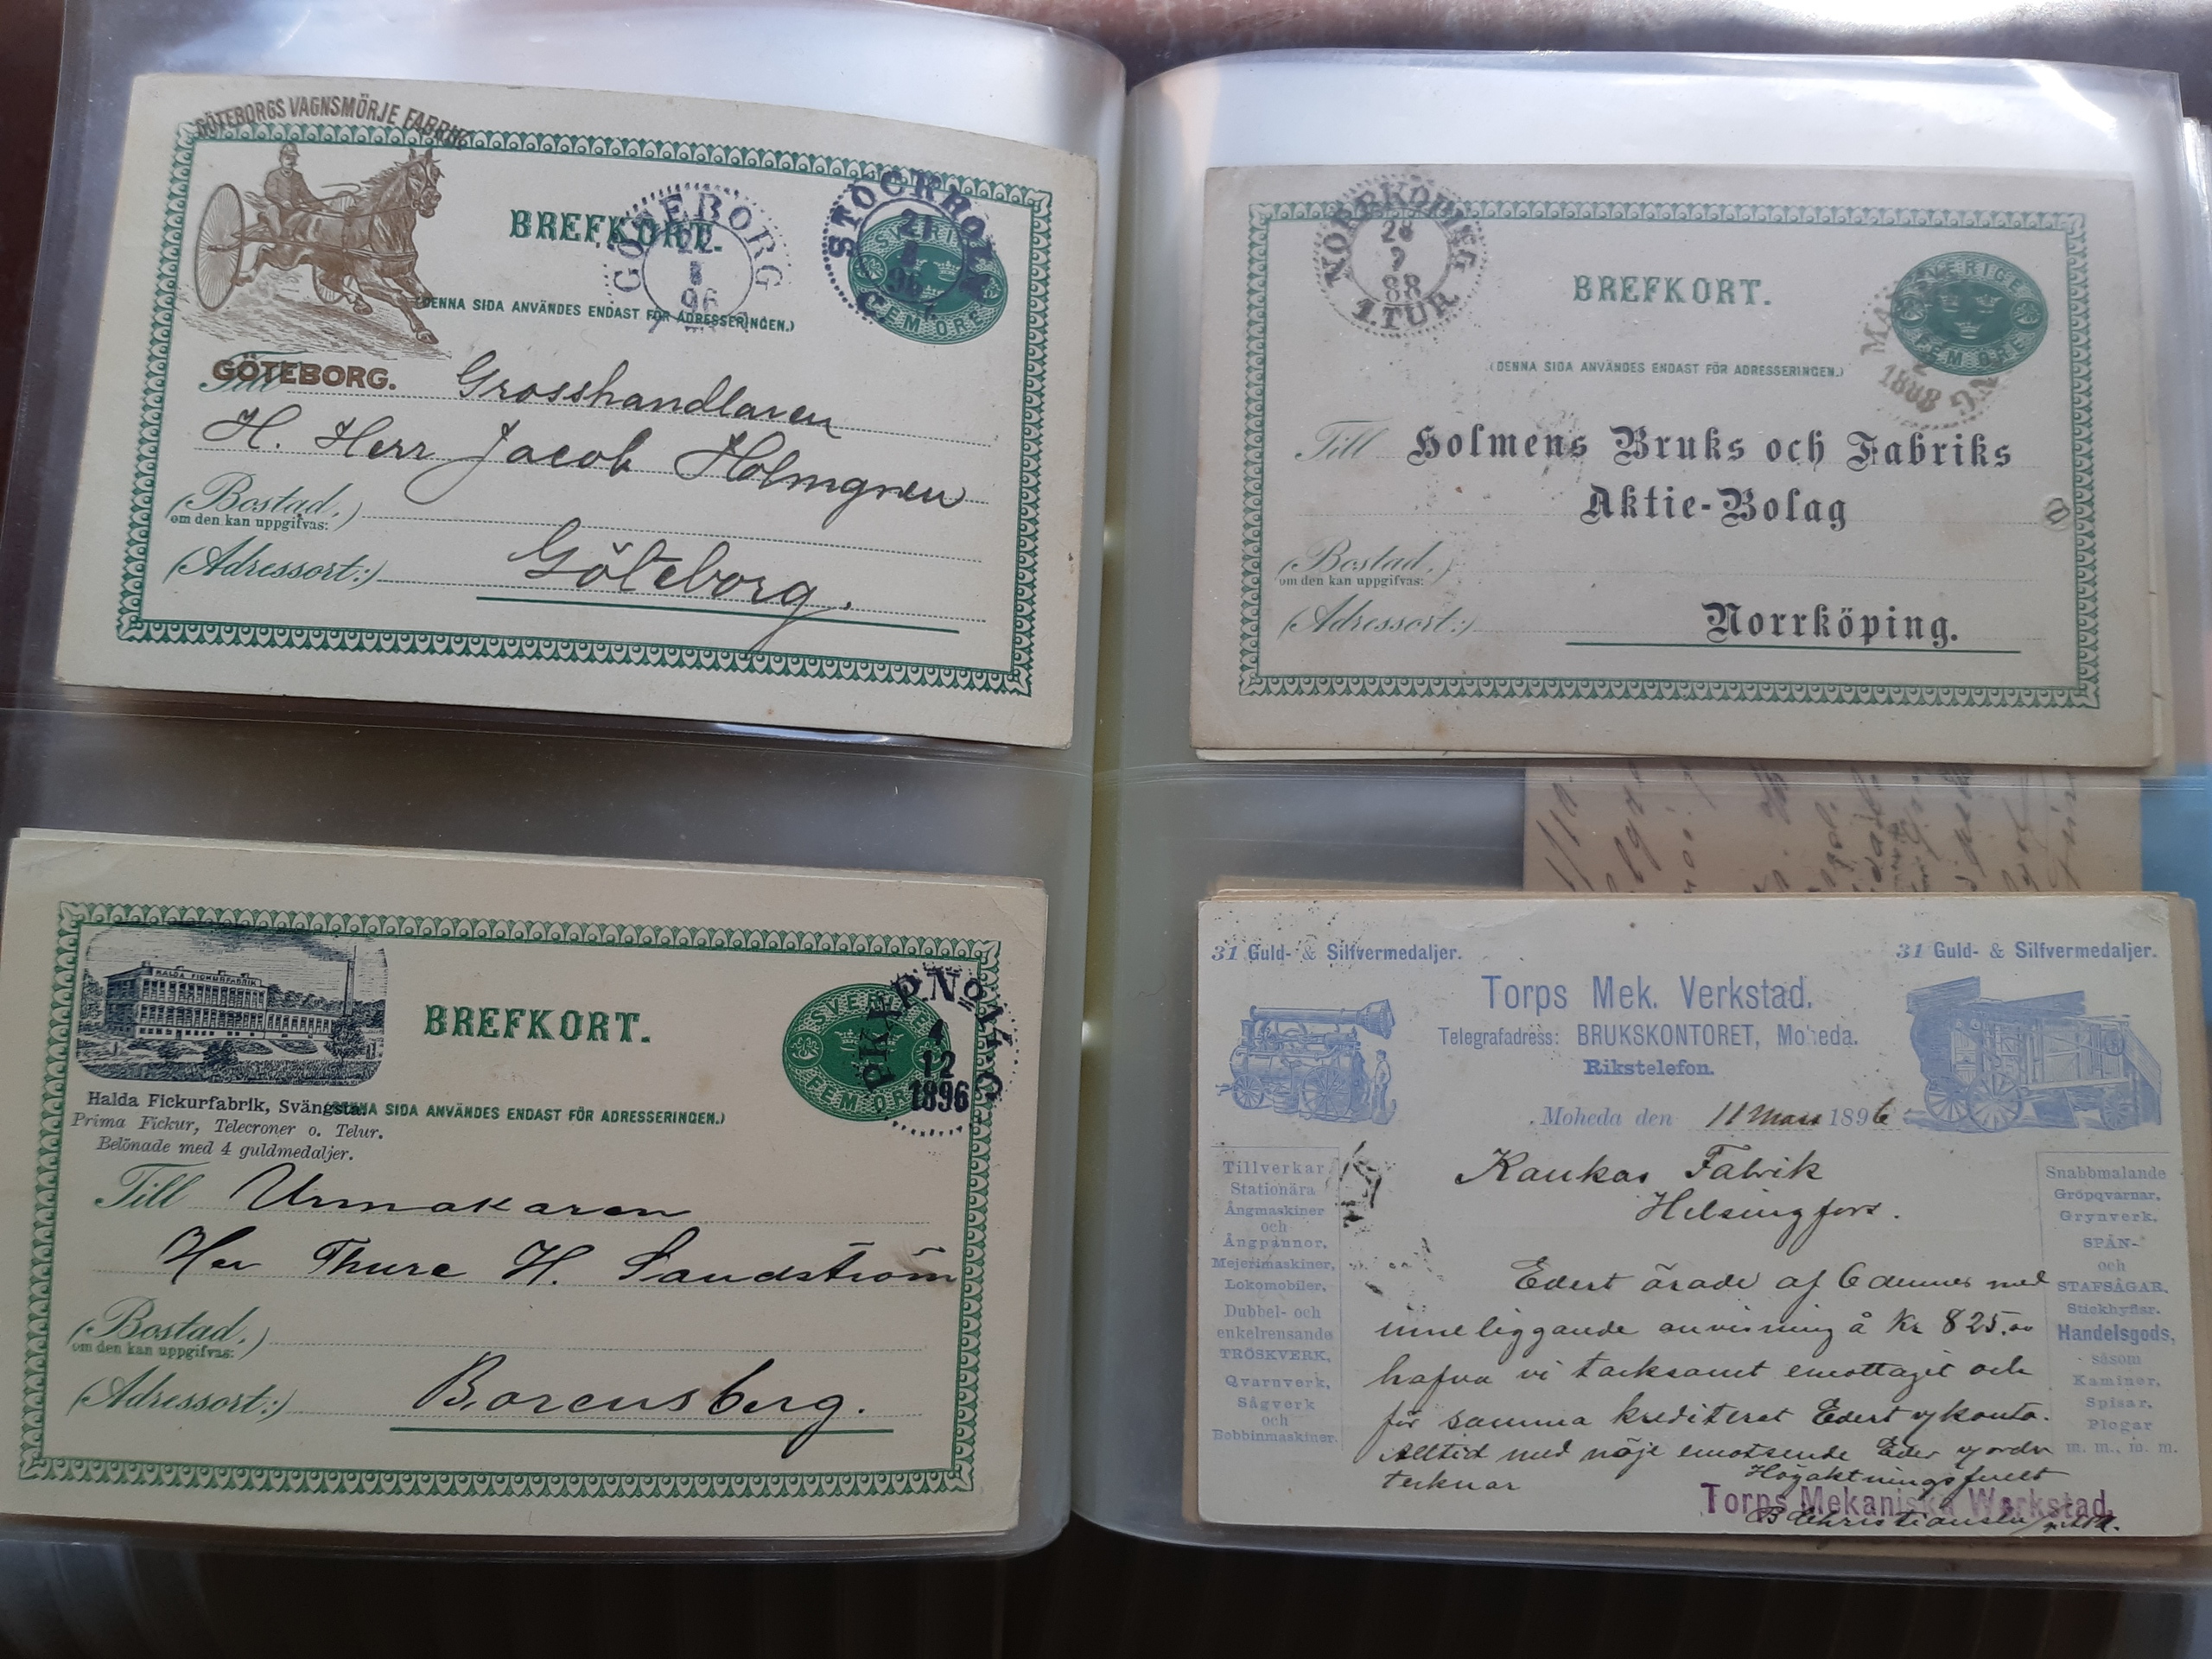 GÖTEBORGS VAGNSMÖRJE FABRIK
BREFKORT.
GÖTEBORG
22
96
STOCKHOLM
21
96
SVERIGE
FEM ÖRE
(DENNA SIDA ANVÄNDES ENDAST FÖR ADRESSERINGEN.)
GÖTEBORG.
Till Grosshandlaren
H. Herr Jacob Holmgren
(Bostad,)
om den kan uppgifvas:
(Adressort:) Göteborg.
NORRKÖPING
28
88
1.TUR
BREFKORT.
SVERIGE
FEM ÖRE
1888
(DENNA SIDA ANVÄNDES ENDAST FÖR ADRESSERINGEN.)
Till Holmens Bruks och Fabriks
Aktie-Bolag
(Bostad,)
om den kan uppgifvas:
(Adressort:) Norrköping.
HALDA FICKURFABRIK
BREFKORT.
SVERIGE
FEM ÖRE
PKXP.No
4
12
1896
Halda Fickurfabrik, Svängsta.
(DENNA SIDA ANVÄNDES ENDAST FÖR ADRESSERINGEN.)
Prima Fickur, Telecroner o. Telur.
Belönade med 4 guldmedaljer.
Till Urmakaren
Herr Thure H. Sandström
(Bostad,)
om den kan uppgifvas:
(Adressort:) Borensberg.
31 Guld- & Silfvermedaljer.
31 Guld- & Silfvermedaljer.
Torps Mek. Verkstad.
Telegrafadress: BRUKSKONTORET, Moheda.
Rikstelefon.
Moheda den 11 Mars 1896
Tillverkar
Stationära
Ångmaskiner
och
Ångpannor,
Mejerimaskiner,
Lokomobiler,
Dubbel- och
enkelrensande
TRÖSKVERK,
Qvarnverk,
Sågverk
och
Bobbinmaskiner.
Kaukas Fabrik
Helsingfors.
Edert ärade af 6 dennes med
inneliggande anvisning å Kr 825.00
hafva vi tacksamt emottagit och
för samma krediterat Edert konto.
Alltid med nöje emotseende Eder
tecknar
Högaktningsfullt
Torps Mekaniska Werkstad.
Snabbmalande
Gröpqvarnar,
Grynverk,
SPÅN-
och
STAFSÅGAR,
Stickhyflar.
Handelsgods,
såsom
Kaminer,
Spisar,
Plogar
m. m., m. m.